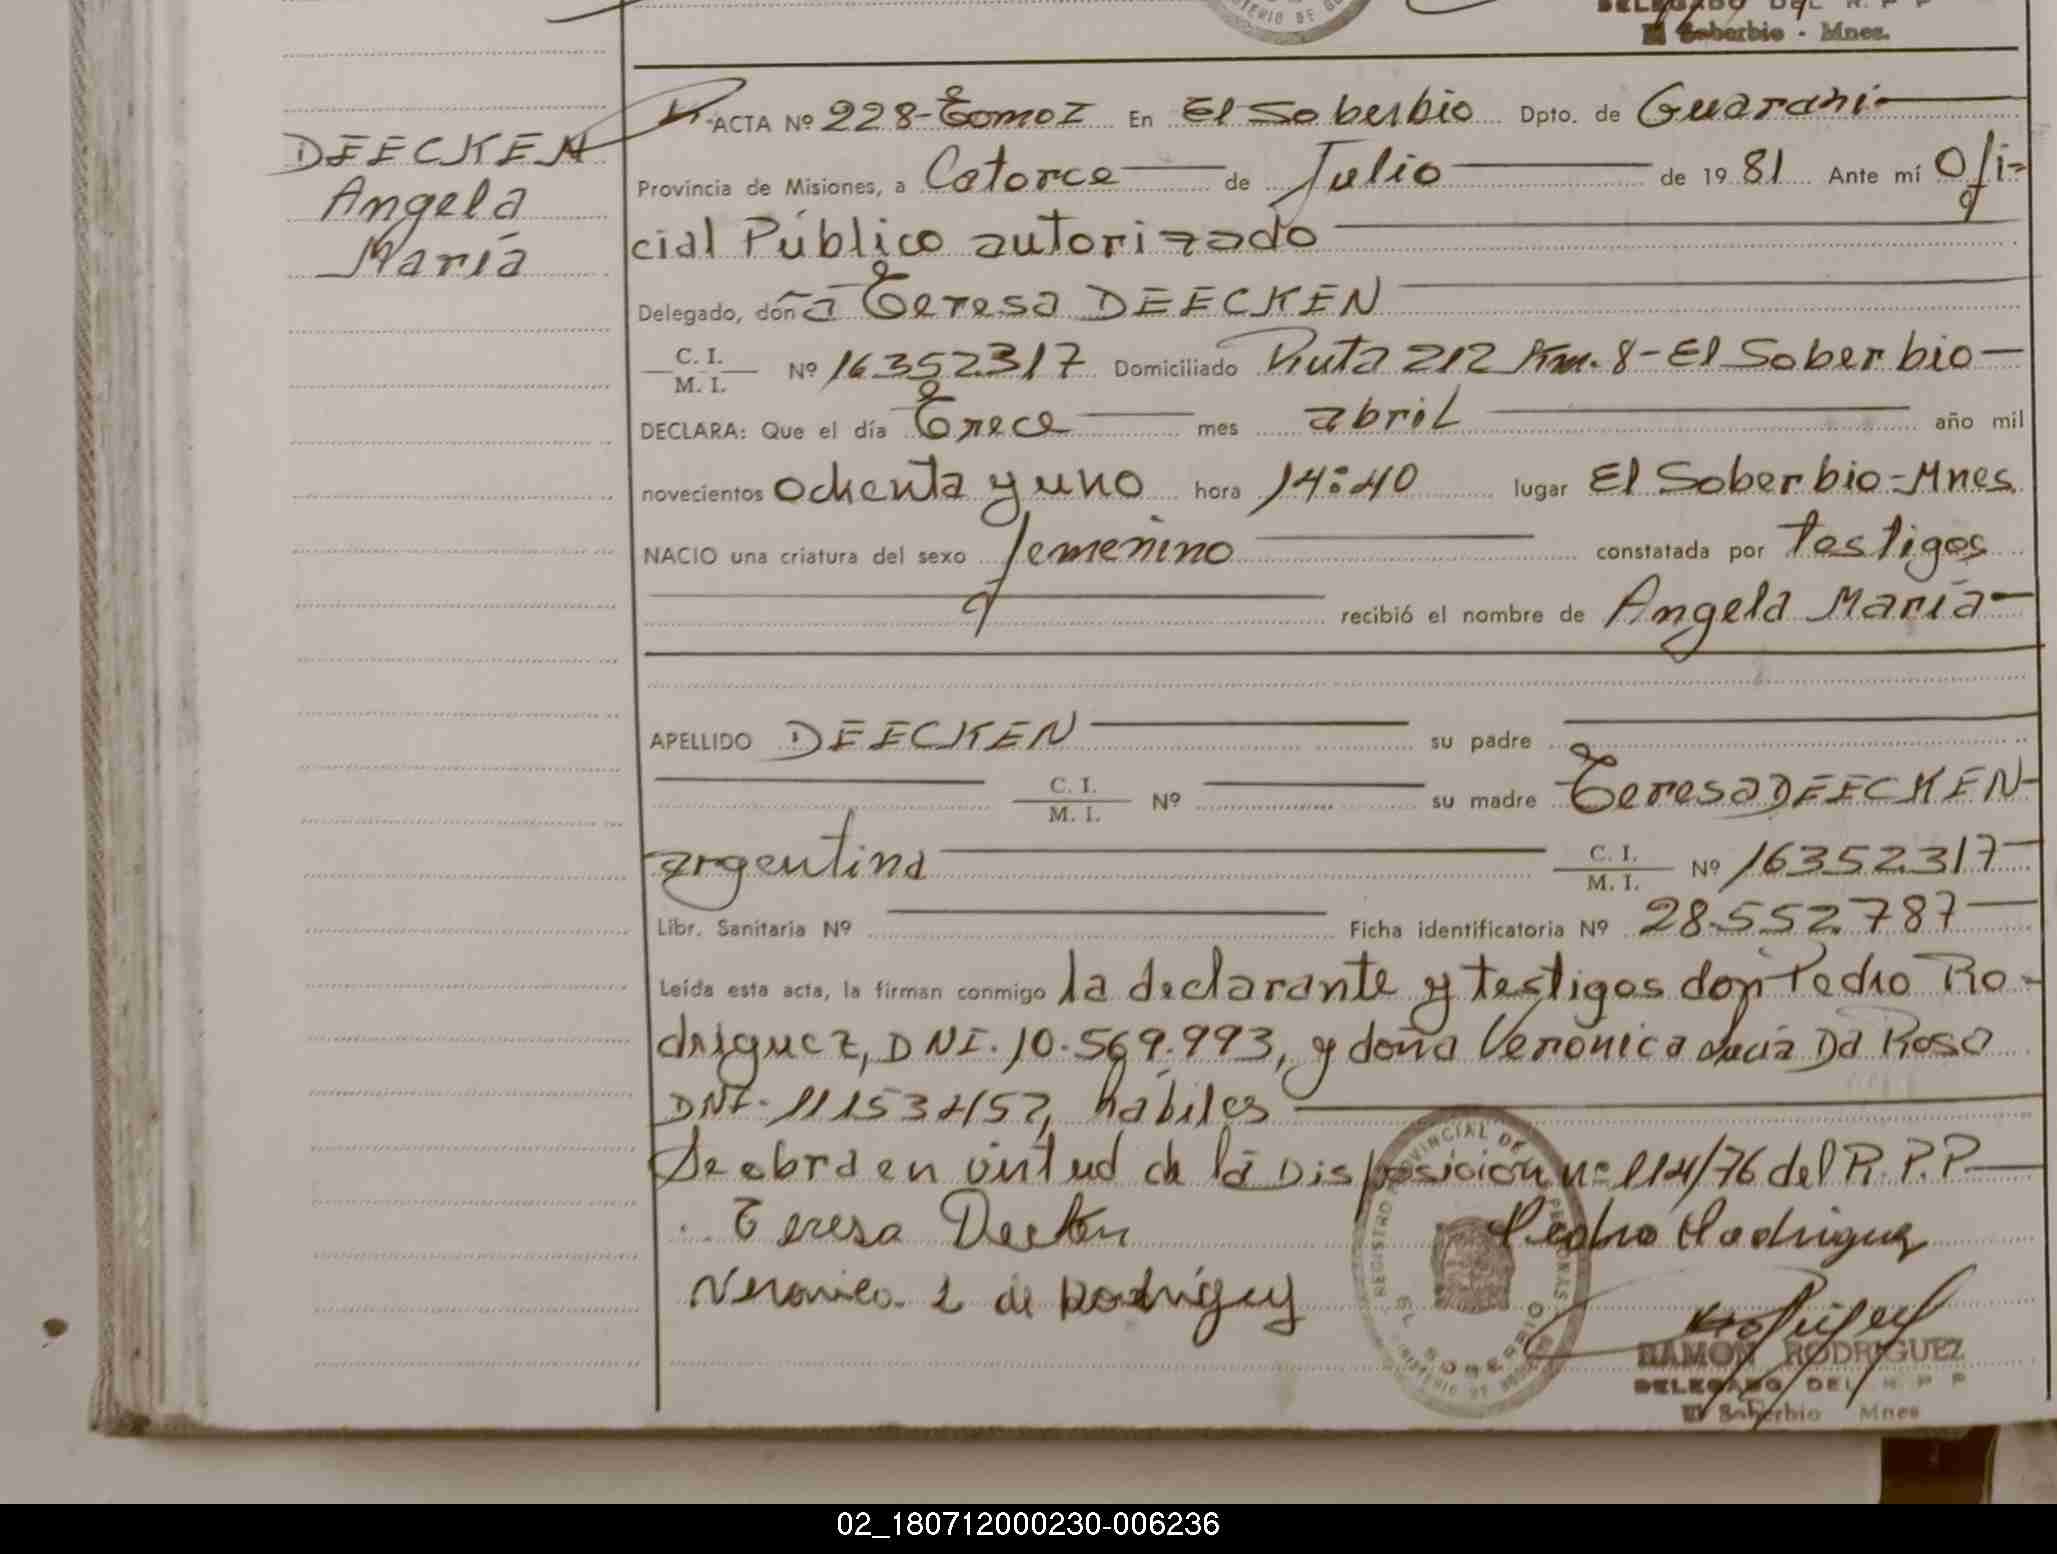 DELEGADO DEL R. P P
El Soberbio - Mnes.
DEECKEN
Angela
María
ACTA Nº 228- Tomo I En El Soberbio Dpto. de Guaraní
Provincia de Misiones, a Catorce de Julio de 19 81 Ante mí Ofi-
cial Público autorizado
Delegado, doña Teresa DEECKEN
C. I.
M. I. Nº 16352317 Domiciliado Ruta 212 Km. 8 - El Soberbio
DECLARA: Que el día Trece mes abril año mil
novecientos ochenta y uno hora 14:40 lugar El Soberbio-Mnes
NACIO una criatura del sexo femenino constatada por testigos
recibió el nombre de Angela María
APELLIDO DEECKEN su padre
C. I.
M. I. Nº su madre Teresa DEECKEN
argentina C. I.
M. I. Nº 16352317
Libr. Sanitaria Nº Ficha identificatoria Nº 28.552.787
Leída esta acta, la firman conmigo la declarante y testigos don Pedro Ro-
driguez, DNI. 10.569.993, y doña Verónica Lucia Da Rosa
DNI- hábiles
Se obra en virtud de la Disposición nº 114/76 del R.P.P.
Teresa Decken Pedro Rodriguez
Veronica L de Rodriguez
REGISTRO PROVINCIAL DE PERSONAS
EL SOBERBIO
RAMON RODRIGUEZ
DELEGADO DEL R P P
El Soberbio Mnes
02_180712000230-006236